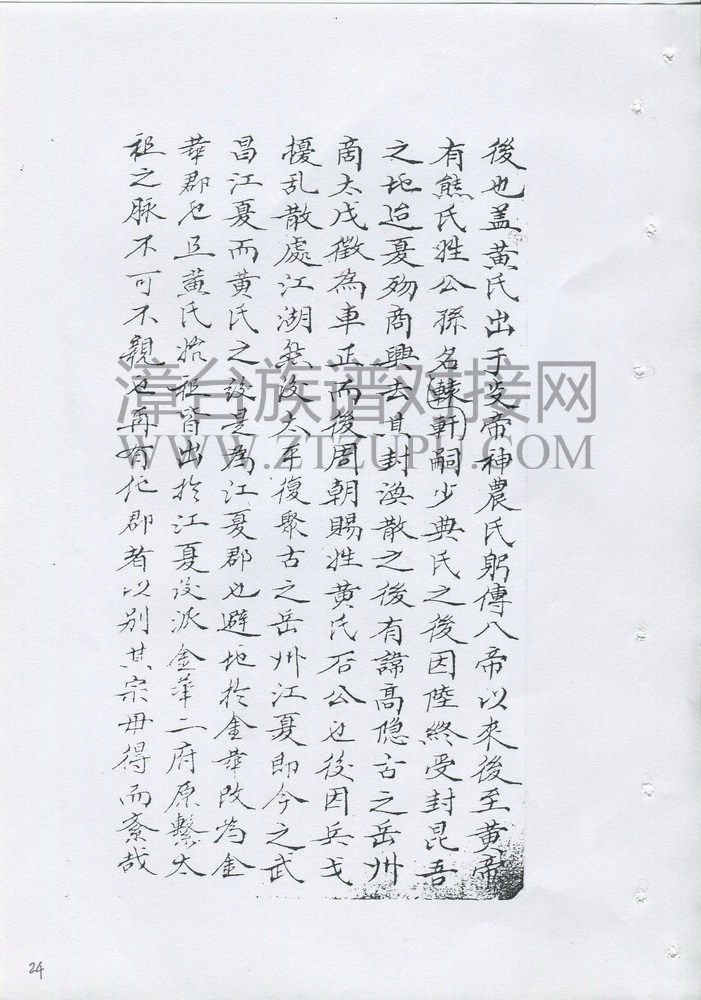 後也盖黄氏出于炎帝神農氏躬傳八帝以來後至黄帝
有熊氏姓公孫名轅軒嗣少典氏之後因陸終受封昆吾
之地迨夏殇商興去其封渙散之後有諱高隐古之岳州
商太戊徵為車正而後周朝賜姓黄氏石公也後因兵戈
擾乱散處江湖然後太平復聚古之岳州江夏即今之武
昌江夏而黄氏之後是為江夏郡也避地於金華改為金
華郡也且黄氏始祖皆出於江夏後派金華二府原繫太
祖之脉不可不親也再有佗郡者以别其宗毋得而紊哉
漳台族谱对接网
WWW.ZTZUPU.COM
24